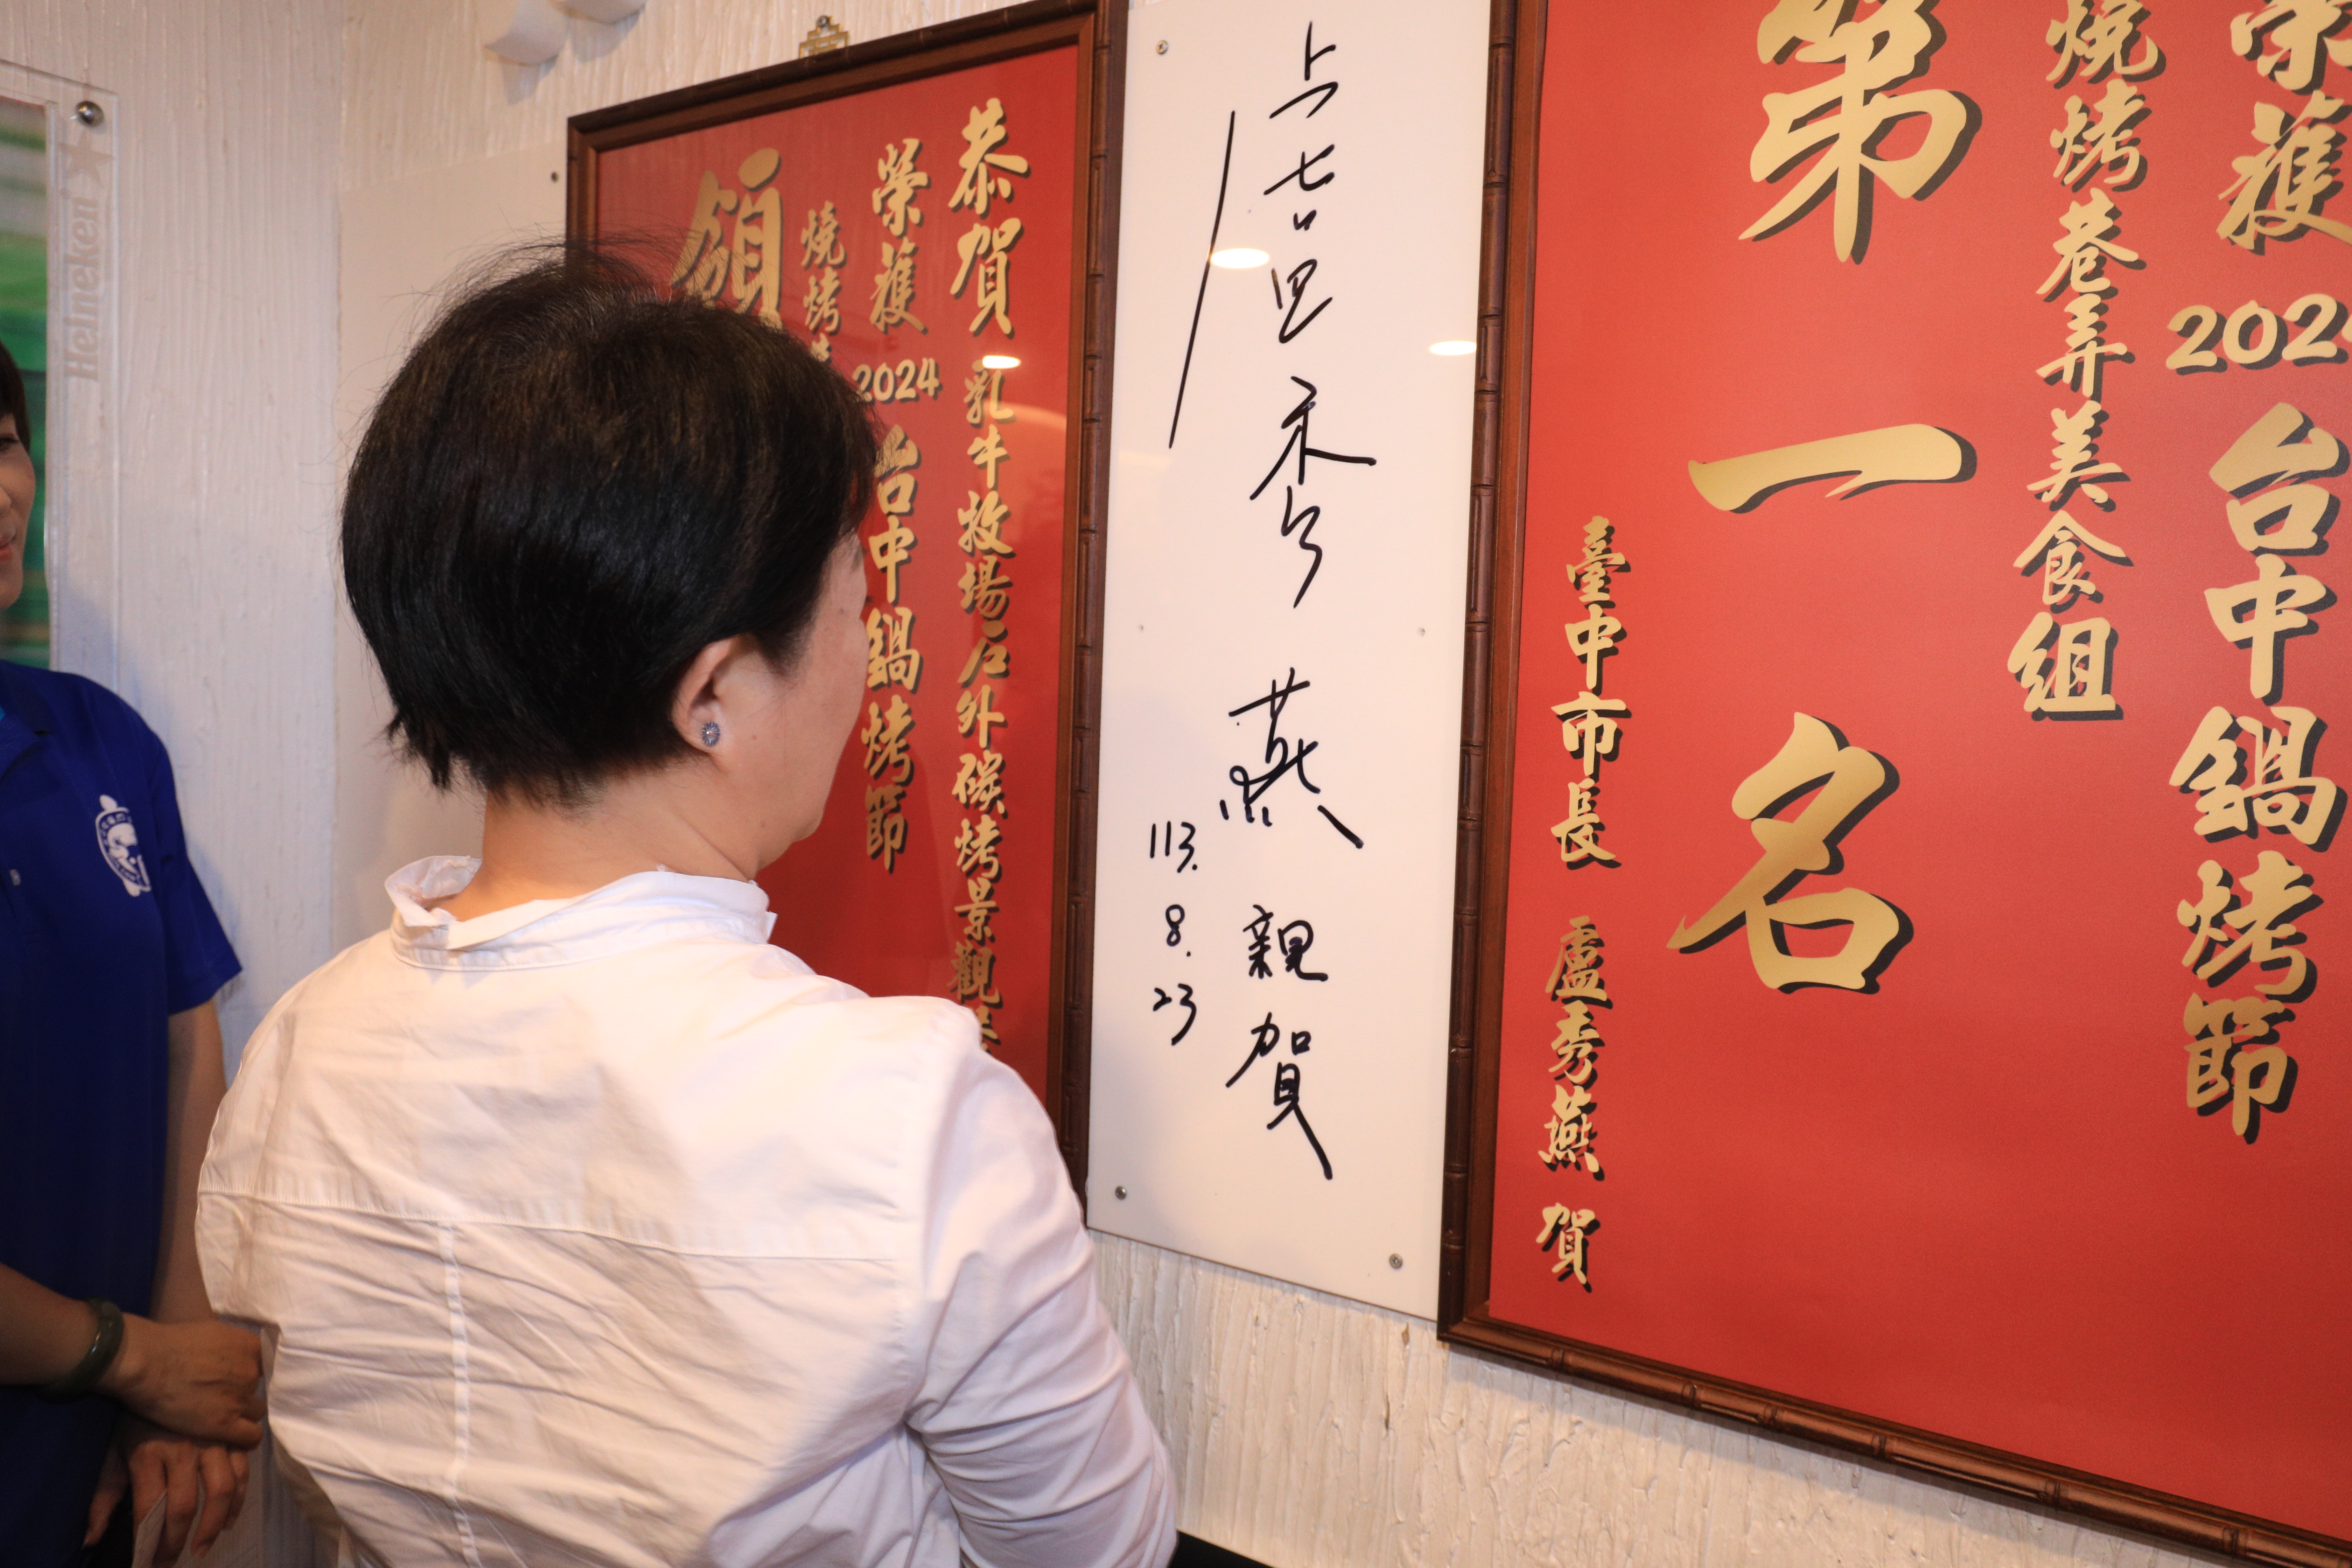 榮獲 2024 台中鍋烤節
燒烤巷弄美食組
第一名
臺中市長 盧秀燕 賀
盧秀燕 親賀
113.8.23
恭賀 乳牛牧場戶外碳烤景觀
榮獲 2024 台中鍋烤節
燒烤
領
Heineken